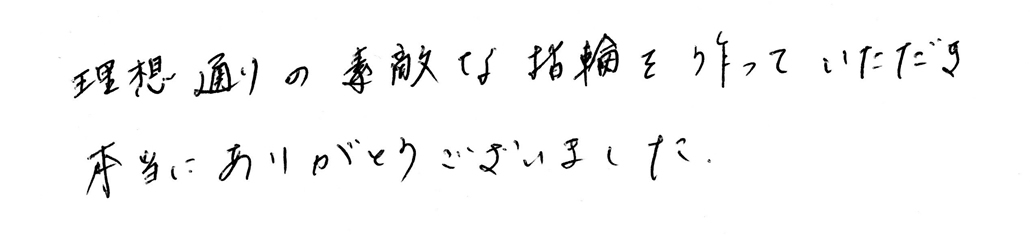 理想通りの素敵な指輪を作っていただき
本当にありがとうございました.